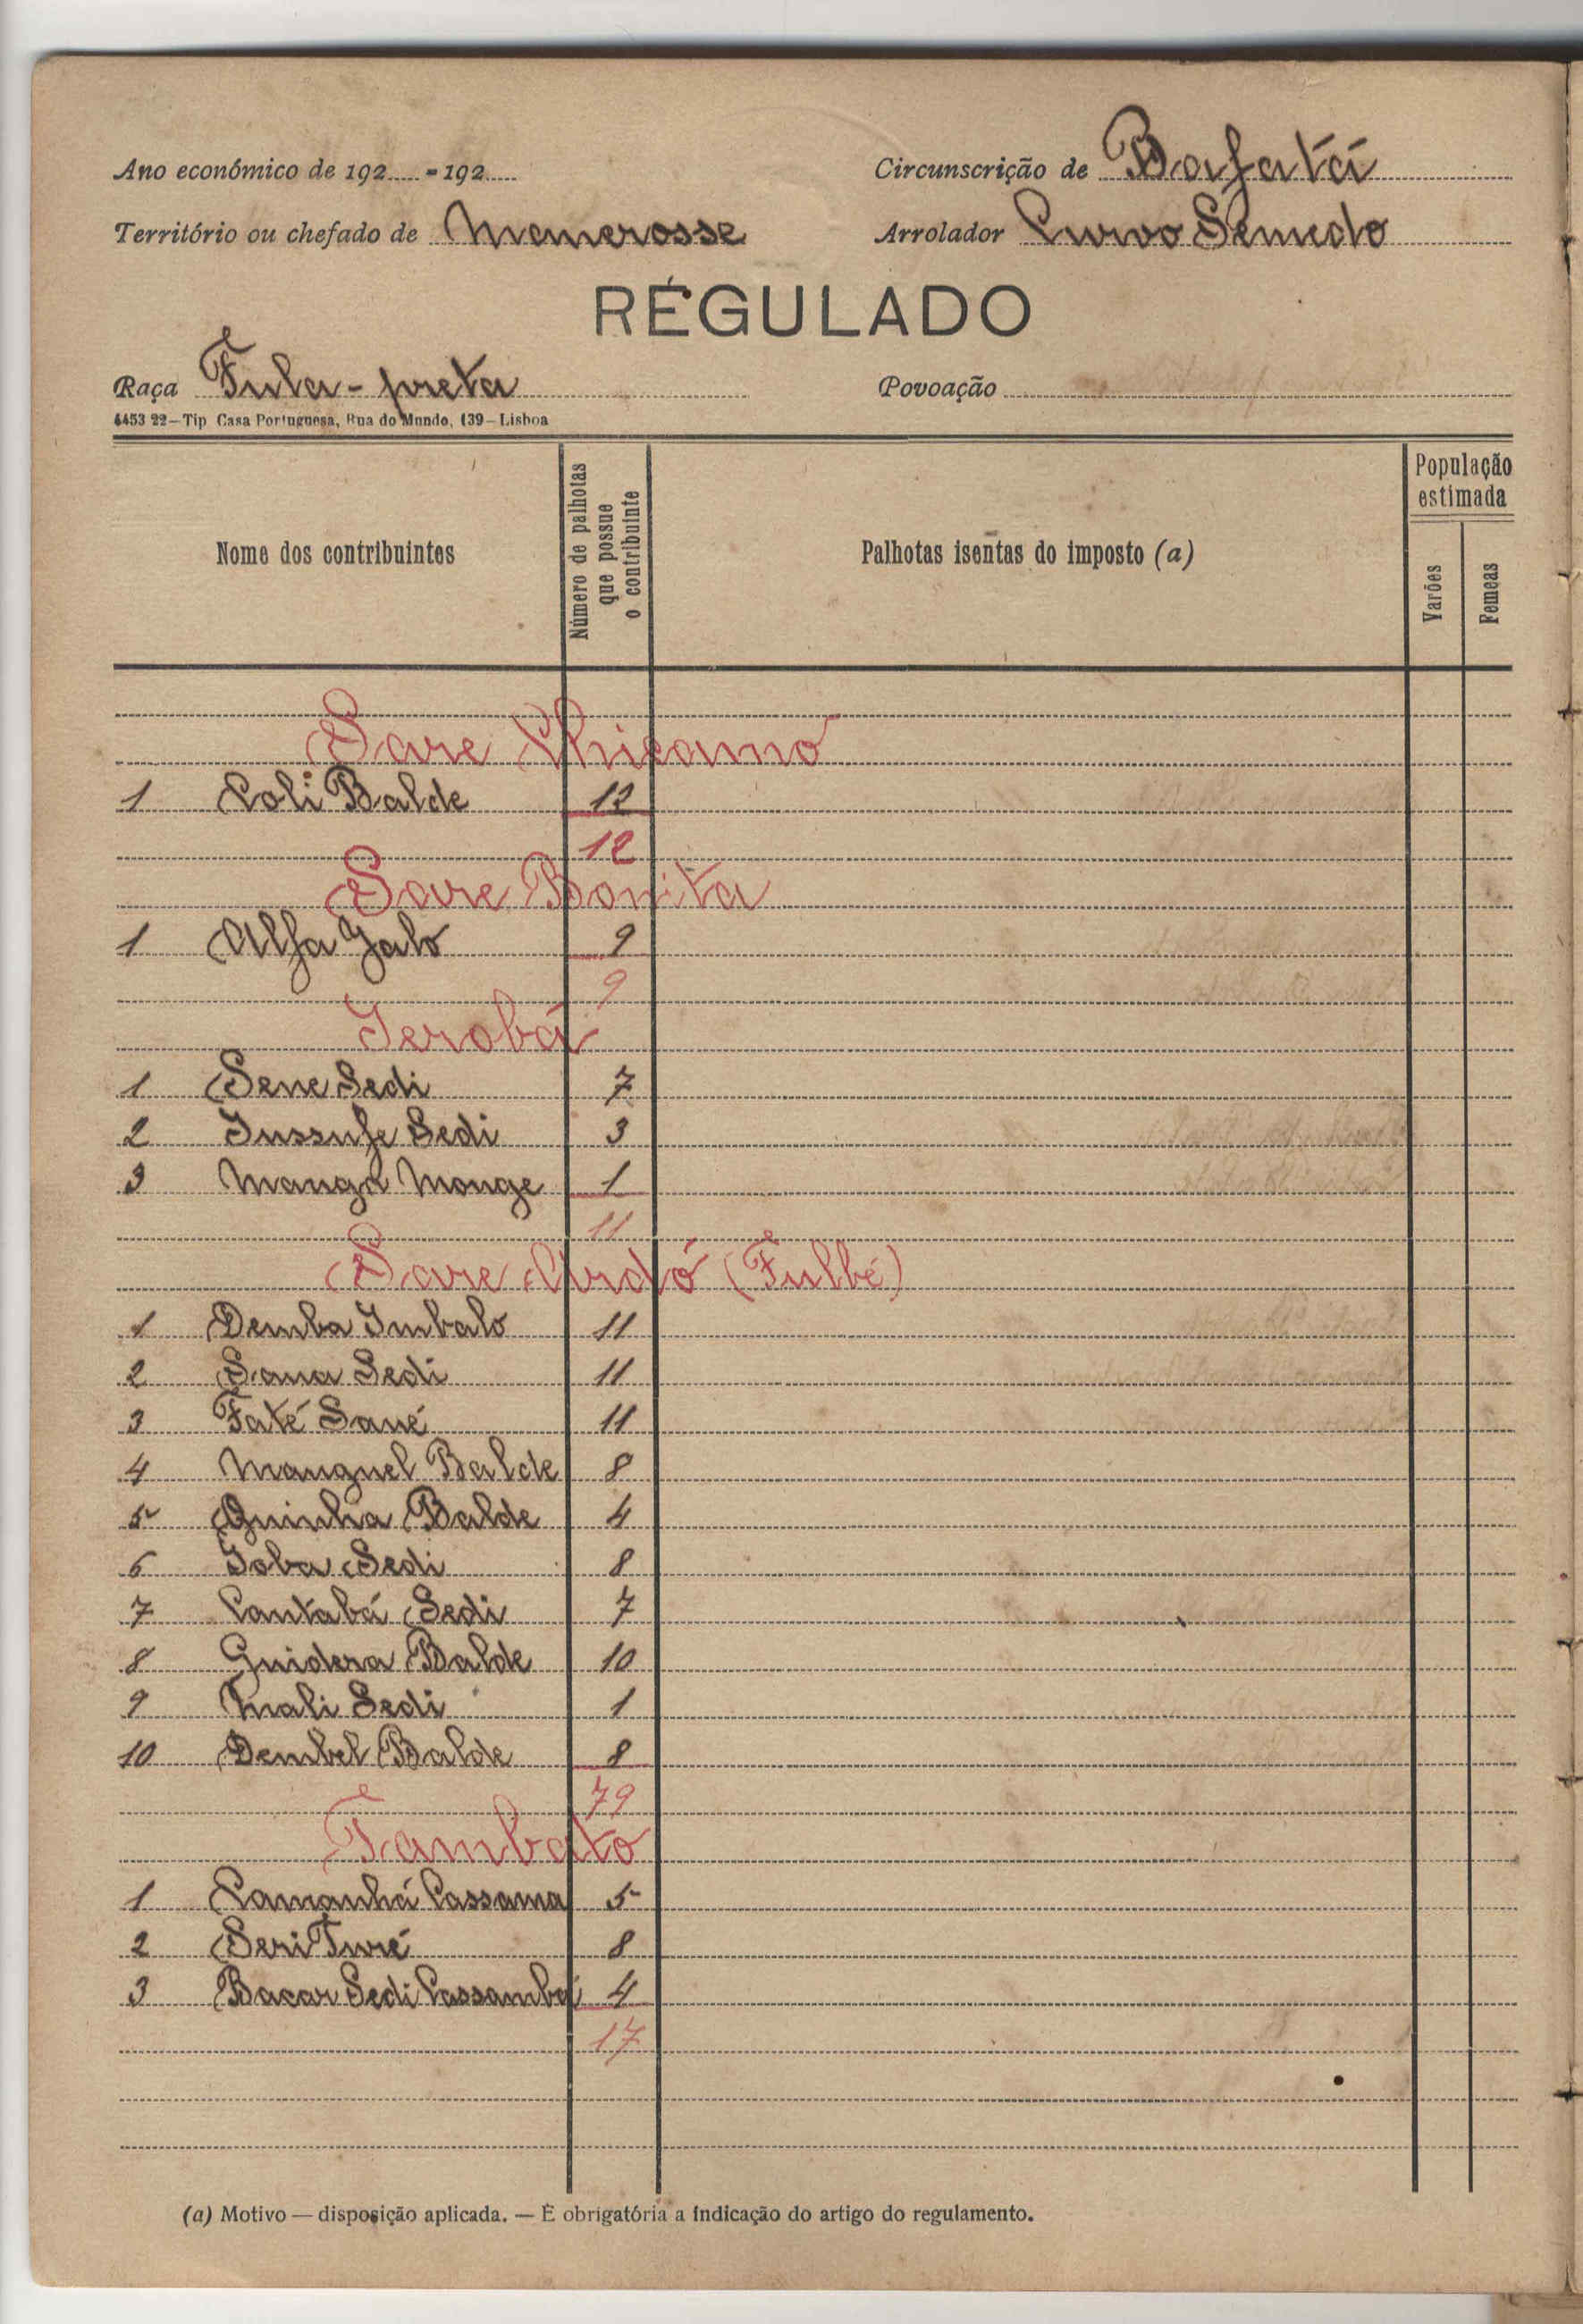 Ano económico de 192..... - 192.....
Circunscrição de Bafatá
Território ou chefado de Mamerosse
Arrolador Curvo Semedo
RÉGULADO
Raça Fula-preta
Povoação
4453 22—Tip Casa Portuguesa, Rua do Mundo, 139—Lisboa
Nome dos contribuintes
Número de palhotas que possue o contribuinte
Palhotas isentas do imposto (a)
População estimada
Varões
Femeas
Sare Chicamo
1 Coli Balde 12
12
Sare Bonita
1 Alfa Jalo 9
9
Jerobá
1 Sene Sedi 7
2 Jussufe Sedi 3
3 Manga Monge 1
11
Sare Ardó (Fulbé)
1 Demba Imbalo 11
2 Sana Sedi 11
3 Faté Sané 11
4 Manguel Balde 8
5 Quinha Balde 4
6 Joba Sedi 8
7 Cantabá Sedi 7
8 Guidera Balde 10
9 Mali Sedi 1
10 Dembel Balde 8
79
Tambato
1 Camanhá Cassama 5
2 Seri Turé 8
3 Bacar Sedi Cassambá 4
17
(a) Motivo — disposição aplicada. — É obrigatória a indicação do artigo do regulamento.